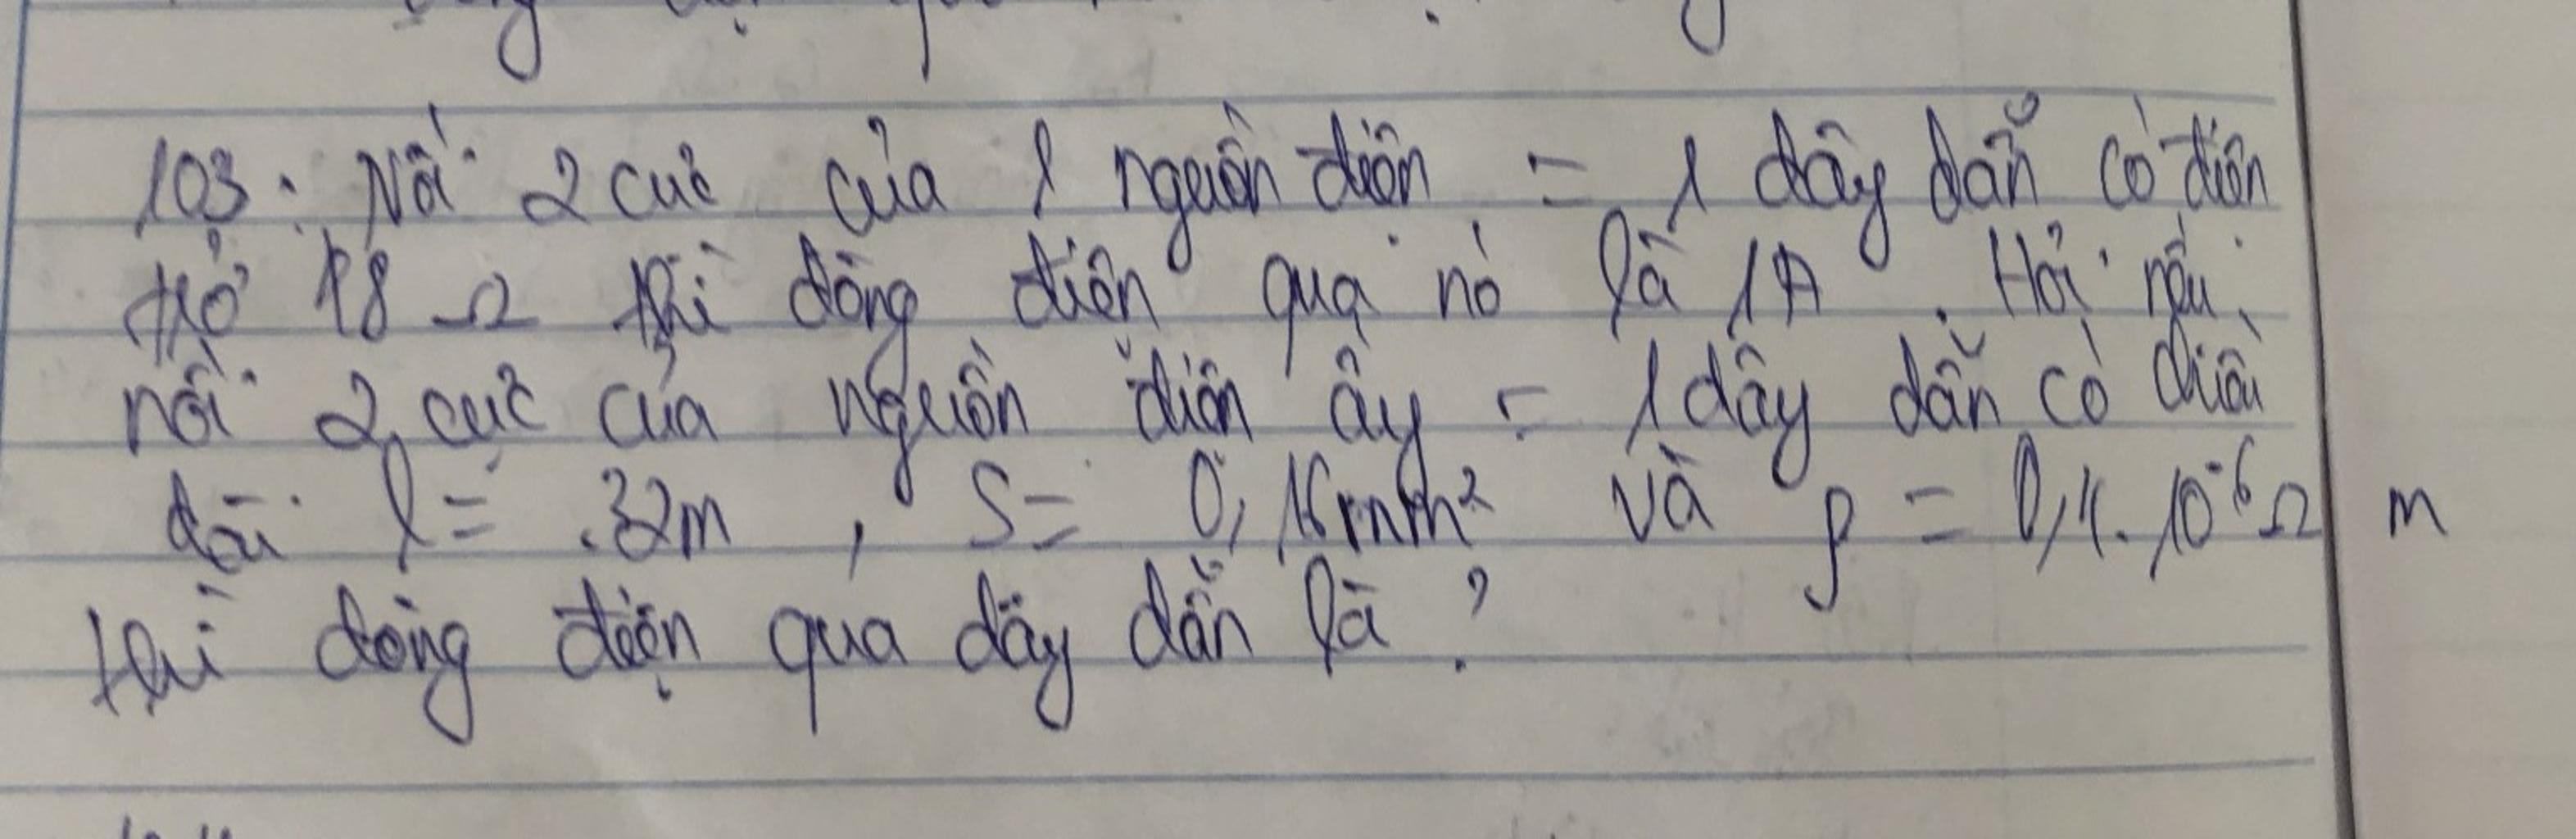 103: Nối 2 cực của 1 nguồn điện = 1 dây dẫn có điện
trở 18 Ω thì dòng điện qua nó là 1A. Hỏi nếu
nối 2 cực của nguồn điện ấy = 1 dây dẫn có chiều
dài l = 32m, S = 0,16mm² và ρ = 0,4.10⁻⁶Ω m
thì dòng điện qua dây dẫn là?